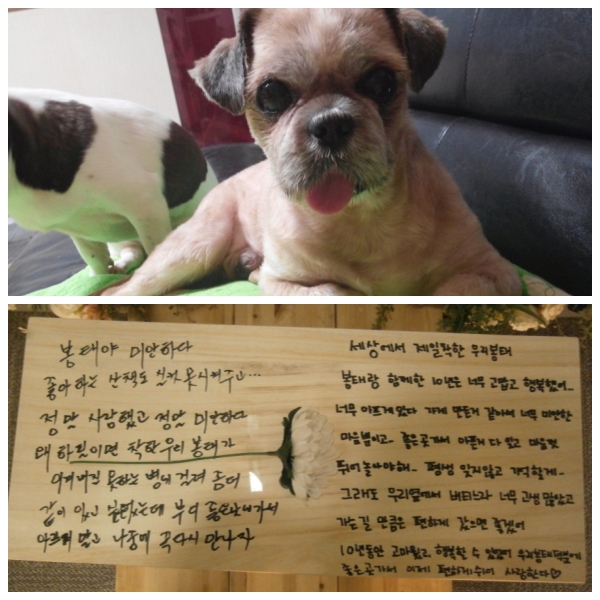 봉태야 미안하다
좋아하는 산책도 실컷 못시켜주고...
정말 사랑했고 정말 미안하다
왜 하필이면 착한 우리 봉태가
이겨내지 못하는 병에 걸려 좀더
같이 있고 싶었는데 부디 좋은
아프지 말고 나중에 꼭 다시 만나자
세상에서 제일착한 우리봉태
봉태랑 함께한 10년은 너무 고맙고 행복했어..
너무 아프게 가게 만든거 같아서 너무 미안한
마음뿐이고.. 좋은곳가서 아픈거 다 잊고 마음껏
뛰어 놀아야해.. 평생 잊지않고 기억할게..
그래도 우리곁에서 버티느라 너무 고생많았고
가는길 만큼은 편하게 갔으면 좋겠어
10년동안 고마웠고, 행복할 수 있었어 우리봉태덕분에
좋은곳가서 이제 편하게쉬어 사랑한다♡